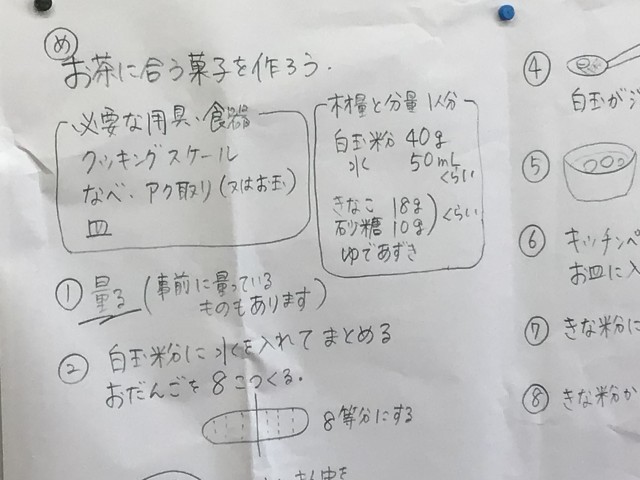 め
お茶に合う菓子を作ろう.
必要な用具、食器
クッキングスケール
なべ、アク取り(又はお玉)
皿
材料と分量 1人分
白玉粉 40g
水 50mL
くらい
きなこ 18g
砂糖 10g
くらい
ゆであずき
① 量る (事前に量っている
ものもあります)
② 白玉粉に水を入れてまとめる
おだんごを8こつくる.
8等分にする
④
白玉が
⑤
⑥ キッチンペ
お皿に入
⑦ きな粉に
⑧ きな粉か